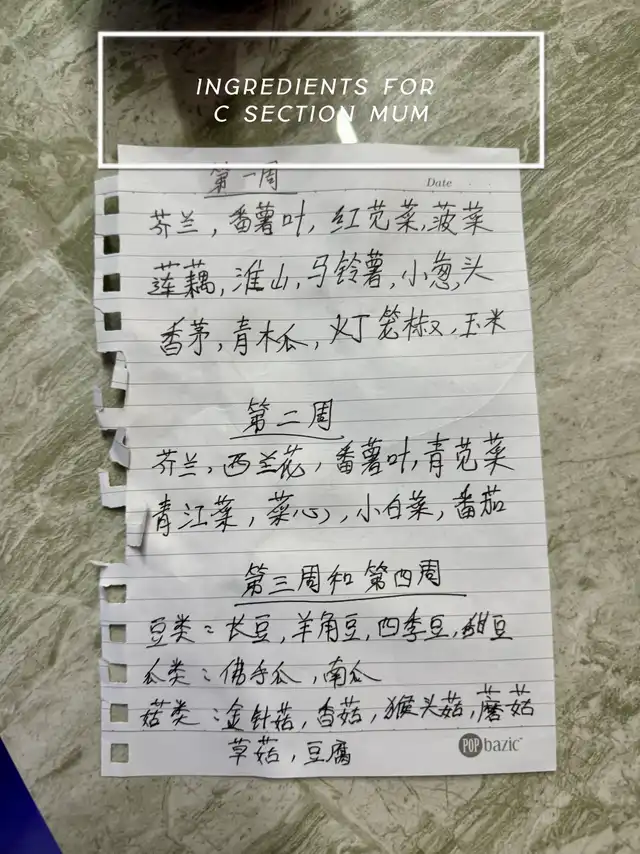 INGREDIENTS FOR
C SECTION MUM
第一周
Date
芥兰，番薯叶，红苋菜，菠菜
莲藕，淮山，马铃薯，小葱，头
香茅，青木瓜，灯笼椒，玉米
第二周
芥兰，西兰花，番薯叶，青苋菜
青江菜，菜心，小白菜，番茄
第三周和第四周
豆类：长豆，羊角豆，四季豆，甜豆
瓜类：佛手瓜，南瓜
菇类：金针菇，香菇，猴头菇，蘑菇
草菇，豆腐
POP bazic